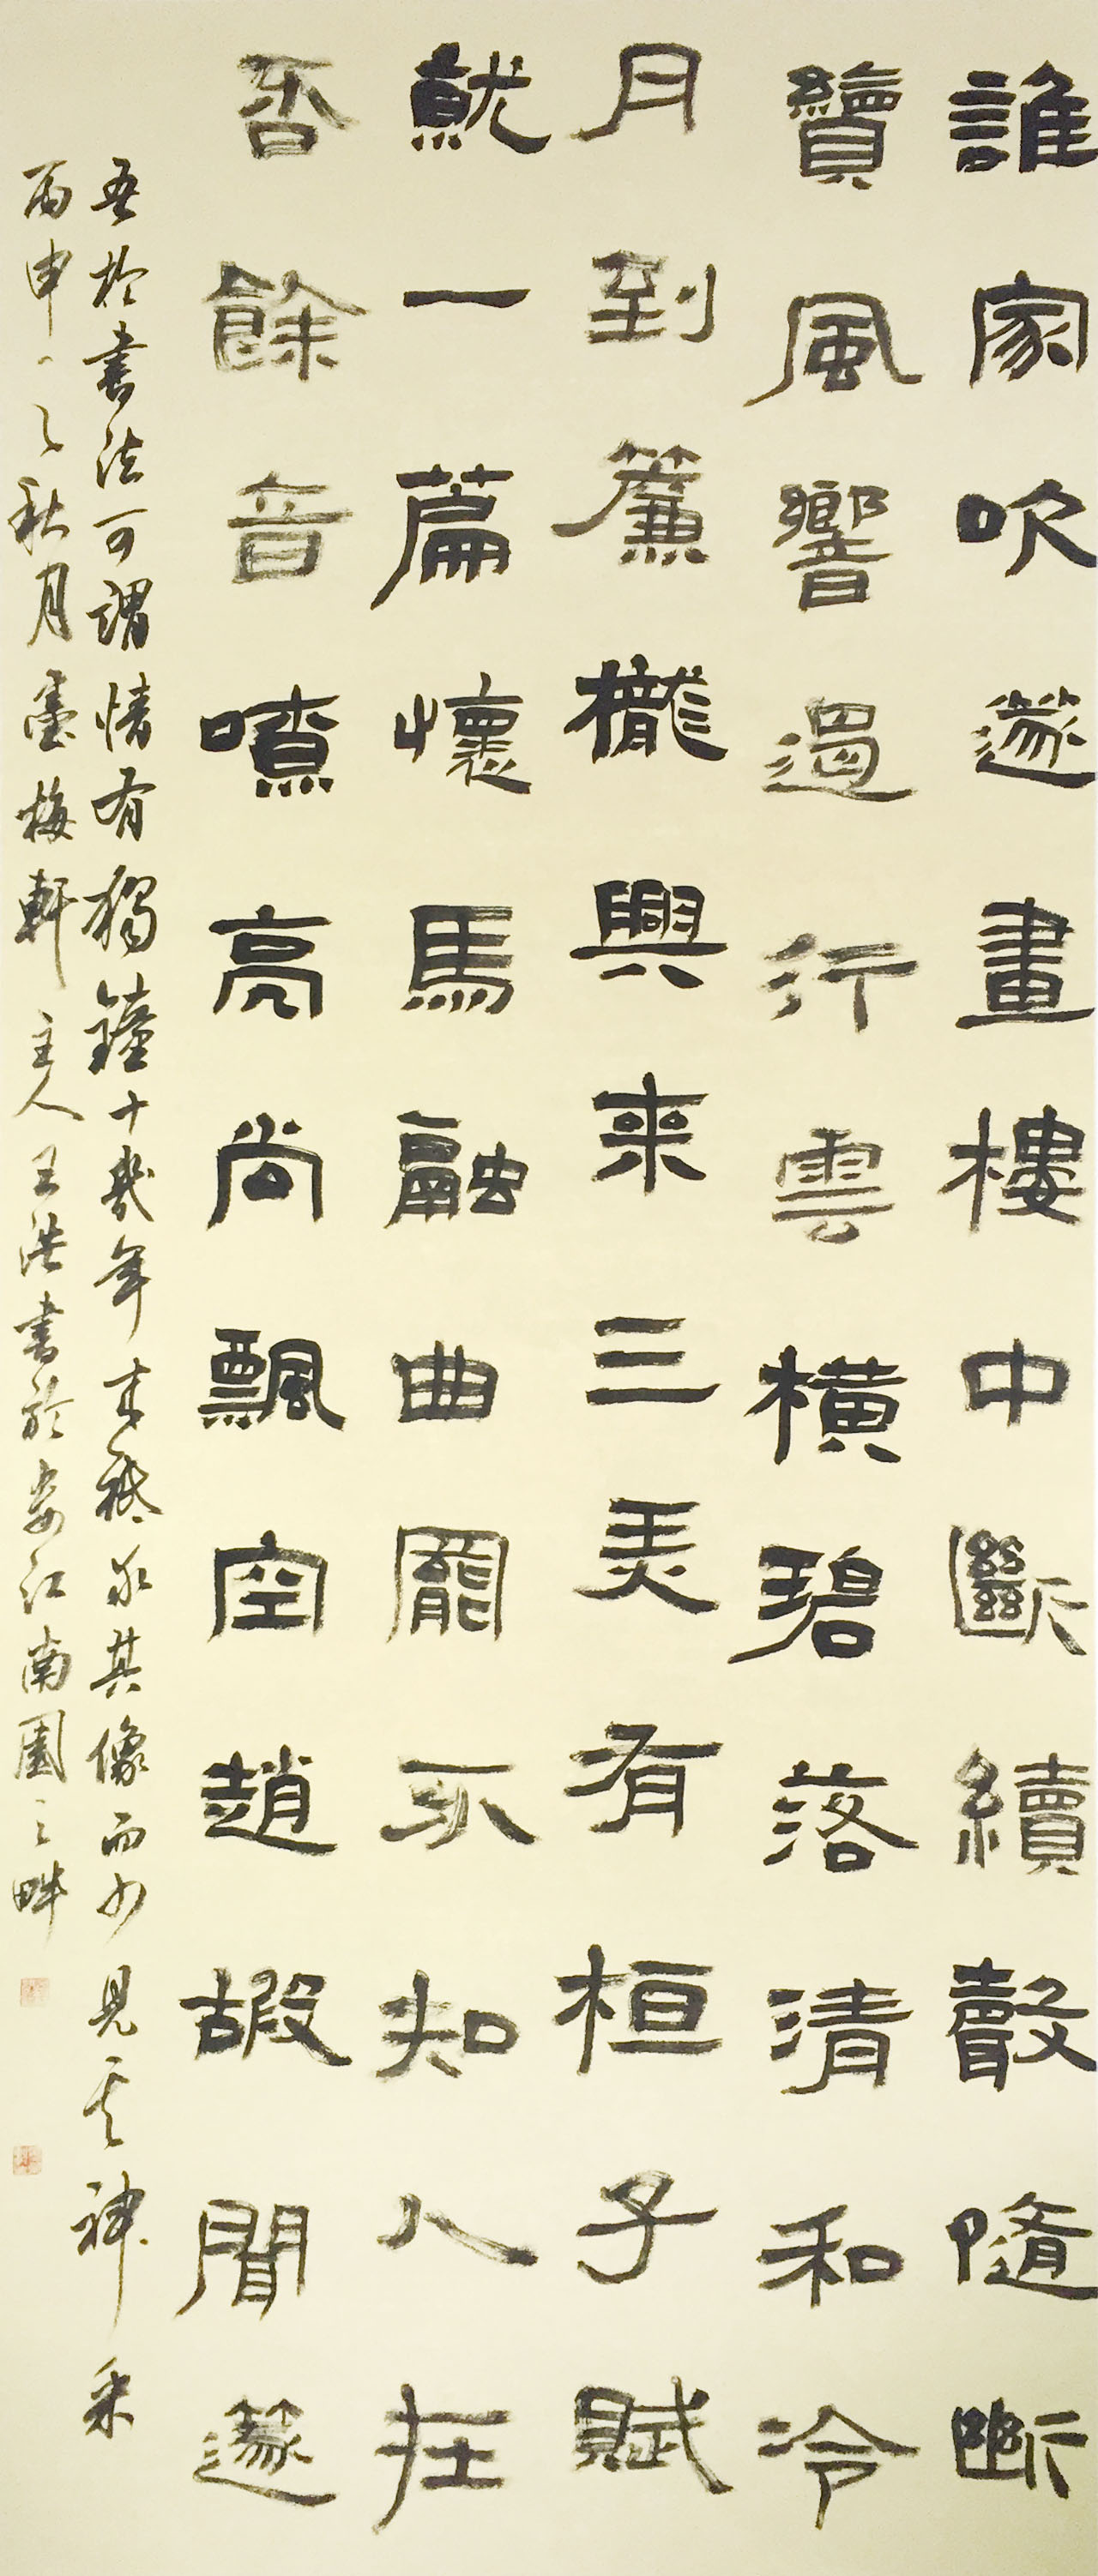 誰家吹篴畫樓中斷續聲隨斷
續風響遏行雲橫碧落清和冷
月到簾櫳興來三弄有桓子賦
就一篇懷馬融曲罷不知人在
否餘音嘹亮尚飄空趙嘏聞篴
吾於書法可謂情有獨鍾十幾年來祗求其像而少見其神采
丙申之秋月墨梅軒主人王浩書於婁江南園之畔